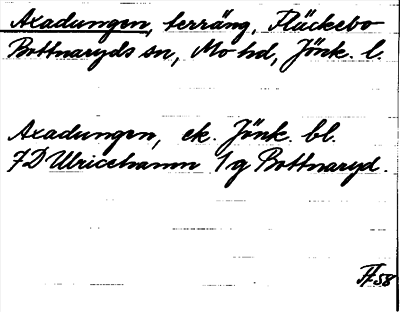 Axadungen, terräng, Fläckebo
Bottnaryds sn, Mo hd, Jönk. l.
Axadungen, ek. Jönk. bl.
7D Ulricehamn 1g Bottnaryd.